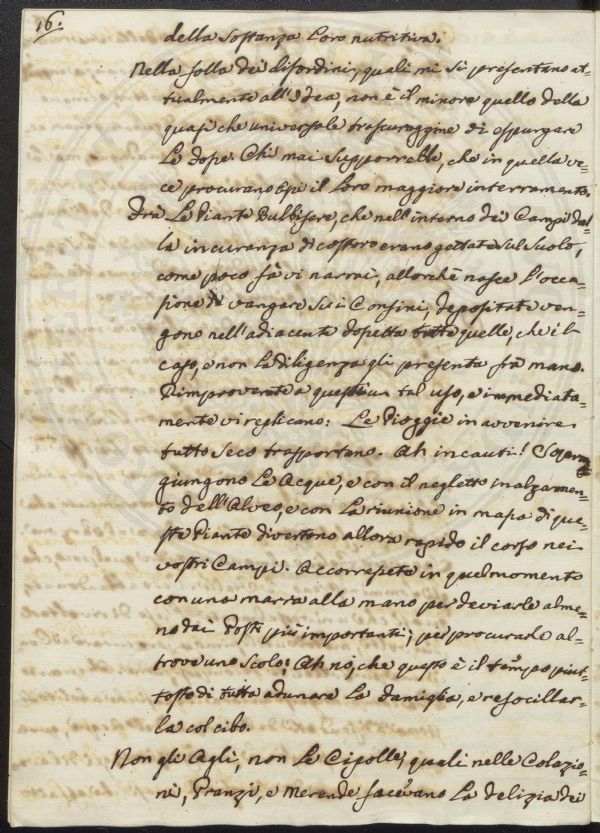 16.
della Sostanza Loro nutritiva.
Nella folla dei disordini, quali mi si presentano at-
tualmente all'Idea, non è il minore quello della
quasi che universale trascuraggine di espurgare
Le dope. Chi mai Supporrelle, che in quella ve-
ce procurano essi il Loro maggiore interramento.
Frà Le Piante Bulbifere, che nell'interno dei Campi dal-
la incuranza di costoro erano gettate Sul Suolo,
come poco fà vi narrai, allorchè nasce l'occa-
sione di vangare Sui Confini, depositate ven-
gono nell'adiacente dopetta tutte quelle, che il
caso, e non La diligenza gli presenta frà mano.
Rimproverate a questi un tal uso, e immediata-
mente vi replicano: Le Pioggie in avvenire
tutto Seco trasportano. Ah incauti! Soprag-
giungono Le Acque, e con il negletto inalzamen-
to dell'Alveo, e con La riunione in massa di que-
ste Piante divertono allora rapido il corso nei
vostri Campi. Accorrepete in quel momento
con una marra alla mano per deviarle alme-
no dai Posti più importanti, per procurarle al-
trove uno Scolo; Ah nò, che questo è il tempo piut-
tosto di tutta adunare La Famiglia, e refocillar-
la col cibo.
Non gli Agli, non Le Cipolle, quali nelle Colazio-
ni, Pranzi, e Merende facevano La delizia dei